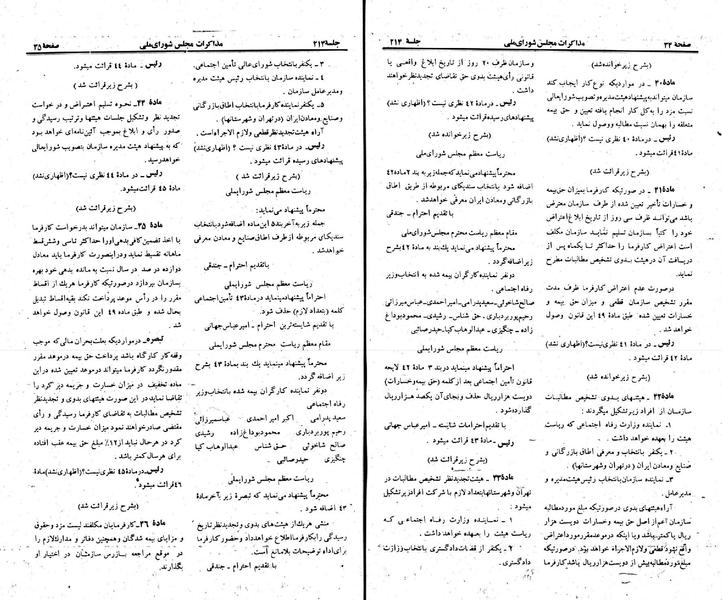 صفحهٔ ۳۴
مذاکرات مجلس شورای ملی
جلسهٔ ۲۱۳
(بشرح زیرخوانده شد)
مادهٔ ۴۰ - در مواردیکه نوع کار ایجاب کند
سازمان میتواند به پیشنهاد هیئت مدیره و تصویب شورایعالی
نسبت مزد را به کل کار انجام یافته تعیین و حق بیمه
متعلقه را بهمان نسبت مطالبه و وصول نماید.
رئیس - در ماده ۴۰ نظری نیست؟(اظهاری نشد)
ماده ۴۱ قرائت میشود.
(بشرح زیر قرائت شد)
مادهٔ ۴۱ - در صورتیکه کارفرما بمیزان حق بیمه
و خسارات تأخیر تعیین شده از طرف سازمان معترض
باشد میتواند ظرف سی روز از تاریخ ابلاغ اعتراض
خود را کتباً بسازمان تسلیم نماید. سازمان مکلف
است اعتراض کارفرما را حداکثر تا یکماه پس از
دریافت آن در هیئت بدوی تشخیص مطالبات مطرح
نماید.
درصورت عدم اعتراض کارفرما ظرف مدت
مقرر تشخیص سازمان قطعی و میزان حق بیمه و
خسارات تعیین شده طبق ماده ۴۹ این قانون وصول
خواهد شد.
رئیس - در ماده ۴۱ نظری نیست؟(اظهاری نشد)
ماده ۴۲ قرائت میشود.
(بشرح زیر خوانده شد)
مادهٔ ۴۲ - هیئتهای بدوی تشخیص مطالبات
سازمان از افراد زیر تشکیل میگردند:
۱ - نماینده وزارت رفاه اجتماعی که ریاست
هیئت را بعهده خواهد داشت.
۲ - یکنفر بانتخاب و معرفی اطاق بازرگانی و
صنایع و معادن ایران (در تهران و شهرستانها)
۳ - نماینده سازمان بانتخاب رئیس هیئت مدیره و
مدیرعامل.
آراء هیئتهای بدوی درصورتیکه مبلغ مورد مطالبه
سازمان اعم از اصل حق بیمه و خسارات دویست هزار
ریال یا کمتر باشد و یا اینکه در موعد مقرر مورد اعتراض
واقع نشود قطعی و لازم الاجراء خواهد بود. در صورتیکه
مبلغ مورد مطالبه بیش از دویست هزار ریال باشد کارفرما
و سازمان ظرف ۲۰ روز از تاریخ ابلاغ واقعی یا
قانونی رأی هیئت بدوی حق تقاضای تجدید نظر خواهند
داشت.
رئیس - در ماده ۴۲ نظری نیست؟ (اظهاری نشد)
پیشنهادهای رسیده قرائت میشود.
(بشرح زیر خوانده شد)
ریاست معظم مجلس شورایملی
محترماً پیشنهاد مینماید که جمله زیر به بند ۲ ماده ۴۲
اضافه شود بانتخاب سندیکای مربوطه از طریق اطاق
بازرگانی و معادن ایران معرفی خواهد شد.
با تقدیم احترام - جندقی
مقام معظم ریاست محترم مجلس شورایملی
محترماً پیشنهاد می نماید یک بند به ماده ۴۲ بشرح
زیر اضافه گردد.
دو نفر نماینده کارگران بیمه شده به انتخاب وزیر
رفاه اجتماعی.
صالح شاخوئی - سعید پدرامی - امیر احمدی - عباس میرزائی
رحیم پور بردباری - حق شناس - رشیدی - محمود بوداغ
زاده - چنگیزی - عبدالوهاب کیا - حیدر صائبی
ریاست معظم مجلس شورایملی
محترماً پیشنهاد مینماید در بند ۳ ماده ۴۲ لایحه
قانون تأمین اجتماعی بعد از کلمه (حق بیمه و خسارات)
دویست هزار ریال حذف و بجای آن یکصد هزار ریال
گذارده شود.
با تقدیم احترامات شایسته - عباس جهانی
رئیس - ماده ۴۳ قرائت میشود.
(بشرح زیر قرائت شد)
مادهٔ ۴۳ - هیئت تجدید نظر تشخیص مطالبات در
تهران و شهرستانها بتعداد لازم با شرکت افراد زیر تشکیل
میشود.
۱ - نماینده وزارت رفاه اجتماعی که
ریاست هیئت را بعهده خواهد داشت.
۲ - یکنفر از قضات دادگستری بانتخاب وزارت
دادگستری.
جلسهٔ ۲۱۳
مذاکرات مجلس شورای ملی
صفحهٔ ۳۵
۳ - یکنفر بانتخاب شورای عالی تأمین اجتماعی.
۴ - نماینده سازمان بانتخاب رئیس هیئت مدیره
و مدیرعامل سازمان.
۵ - یکنفر نماینده کارفرما بانتخاب اطاق بازرگانی
و صنایع و معادن ایران (در تهران و شهرستانها).
آراء هیئت تجدید نظر قطعی و لازم الاجراء است.
رئیس - در ماده ۴۳ نظری نیست؟ (اظهاری نشد)
پیشنهادهای رسیده قرائت میشود.
(بشرح زیر قرائت شد)
ریاست معظم مجلس شورایملی
محترماً پیشنهاد می نماید:
جمله زیر به آخر بند ۵ این ماده اضافه شود بانتخاب
سندیکای مربوطه از طرف اطاق صنایع و معادن معرفی
خواهد شد.
با تقدیم احترام - جندقی
ریاست معظم مجلس شورایملی
احتراماً پیشنهاد مینماید در ماده ۴۳ تأمین اجتماعی
کلمه (بتعداد لازم) حذف شود.
با تقدیم شایسته ترین احترام - امیر عباس جهانی
ریاست معظم مجلس شورایملی
محترماً پیشنهاد مینماید یک بند بماده ۴۳ بشرح
زیر اضافه گردد.
دو نفر نماینده کارگران بیمه شده بانتخاب وزیر
رفاه اجتماعی
سعید پدرامی اکبر امیر احمدی عباس میرزائی
رحیم پور بردباری محمود بوداغ زاده رشیدی
صالح شاخوئی حق شناس عبدالوهاب کیا
چنگیزی حیدر صائبی
ریاست معظم مجلس شورایملی
محترماً پیشنهاد می نماید که تبصره زیر به آخر مادهٔ
۴۳ اضافه شود.
منشی هر یک از هیئت های بدوی و تجدید نظر تاریخ
رسیدگی را بکارفرما اطلاع خواهد داد و حضور کارفرما
برای ادای توضیحات بلامانع است.
با تقدیم احترام - جندقی
رئیس - ماده ۴۴ قرائت میشود.
(بشرح زیر قرائت شد)
مادهٔ ۴۴ - نحوه تسلیم اعتراض و درخواست
تجدید نظر و تشکیل جلسات هیئتها و ترتیب رسیدگی و
صدور رأی و ابلاغ بموجب آئین نامه ای خواهد بود
که به پیشنهاد هیئت مدیره سازمان بتصویب شورایعالی
خواهد رسید.
رئیس - در ماده ۴۴ نظری نیست؟ (اظهاری نشد)
مادهٔ ۴۵ قرائت میشود.
(بشرح زیر قرائت شد)
مادهٔ ۴۵ - سازمان میتواند بدرخواست کارفرما
با اخذ تضمین کافی بدهی او را حداکثر تا سی و شش قسط
ماهانه تقسیط نماید و در اینصورت کارفرما باید معادل
دوازده در صد در سال نسبت به مانده بدهی خود بهره
بسازمان بپردازد درصورتیکه کارفرما هر یک از اقساط
مقرر را در رأس موعد پرداخت نکند بقیه اقساط تبدیل
بحال شده و طبق ماده ۴۹ این قانون وصول خواهد
شد.
تبصره - در مواردیکه بعلت بحران مالی که موجب
وقفه کار کارگاه باشد پرداخت حق بیمه در موعد مقرر
مقدور نگردد کارفرما میتواند در موعد تعیین شده در این
ماده تخفیف در میزان خسارت و جریمه دیر کرد را
تقاضا نماید. در این صورت هیئتهای بدوی و تجدید نظر
تشخیص مطالبات به تقاضای کارفرما رسیدگی و رأی
مقتضی صادر خواهند نمود میزان خسارت و جریمه دیر
کرد در هر حال نباید از ۱۲٪ مبلغ حق بیمه عقب افتاده
برای هر سال کمتر باشد.
رئیس - در ماده ۴۵ نظری نیست؟ (اظهاری نشد) مادهٔ
۴۶ قرائت میشود.
(بشرح زیر قرائت شد)
مادهٔ ۴۶ - کارفرمایان مکلفند لیست مزد و حقوق
و مزایای بیمه شدگان و همچنین دفاتر و مدارک لازم را
در موقع مراجعه بازرس سازمان در اختیار او
بگذارند.